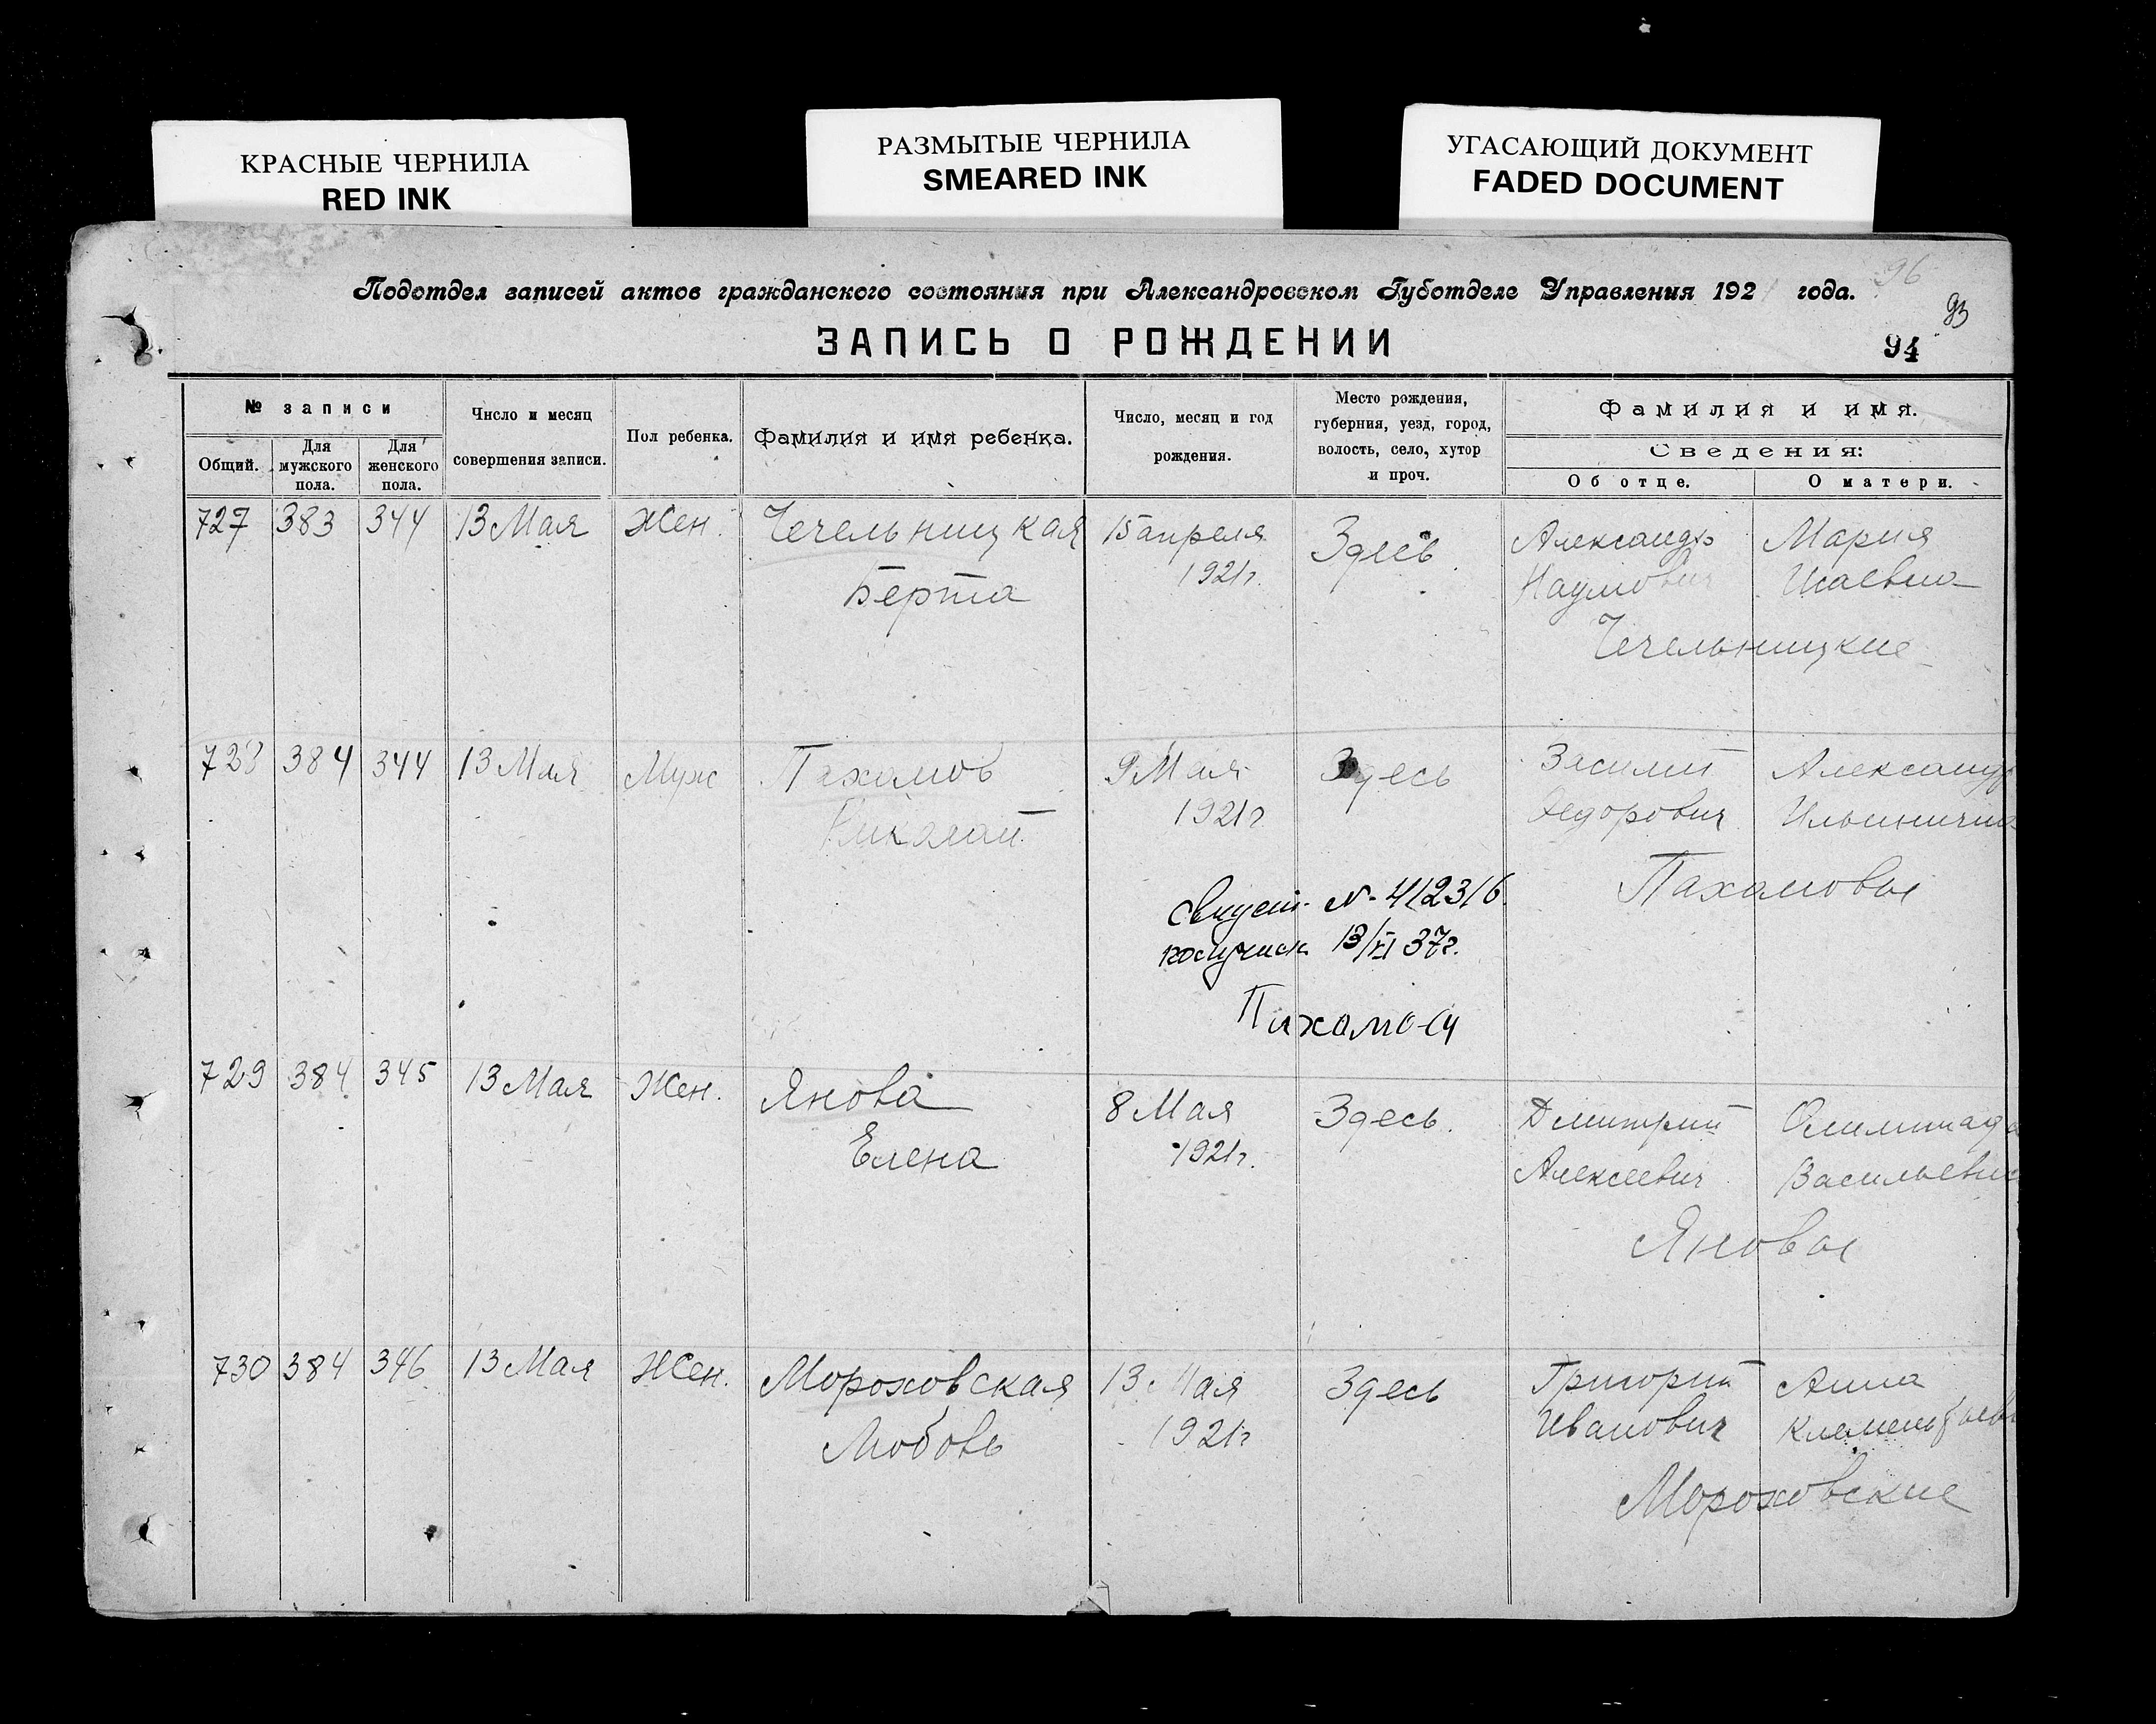 КРАСНЫЕ ЧЕРНИЛА
RED INK
РАЗМЫТЫЕ ЧЕРНИЛА
SMEARED INK
УГАСАЮЩИЙ ДОКУМЕНТ
FADED DOCUMENT
96
Подотдел записей актов гражданского состояния при Александровском Губотделе Управления 192 года.
93
ЗАПИСЬ О РОЖДЕНИИ
94
№ записи
Общий.
Для мужского пола.
Для женского пола.
Число и месяц
совершения записи.
Пол ребенка.
Фамилия и имя ребенка.
Число, месяц и год
рождения.
Место рождения,
губерния, уезд, город,
волость, село, хутор
и проч.
Фамилия и имя.
Сведения:
Об отце.
О матери.
727 383 344 13 Мая Жен. Чечельницкая 15 апреля Здесь. Александр Мария
Берта 1921г. Наумович Исаевна
Чечельницкие
728 384 344 13 Мая Муж Пахамов 9 Мая Здесь Василий Александр
Николай 1921г Федорович Ильинична
Пахамовы
Свидет. N- 412316.
получил 13/VI 37г.
729 384 345 13 Мая Жен. Янова 8 Мая Здесь. Дмитрий Олимпиада
Елена 1921г. Алексеевич Васильевна
Яновы
730 384 346 13 Мая Жен. Мороховская 13 Мая Здесь Григорий Анна
Любовь 1921г Иванович
Мороховские